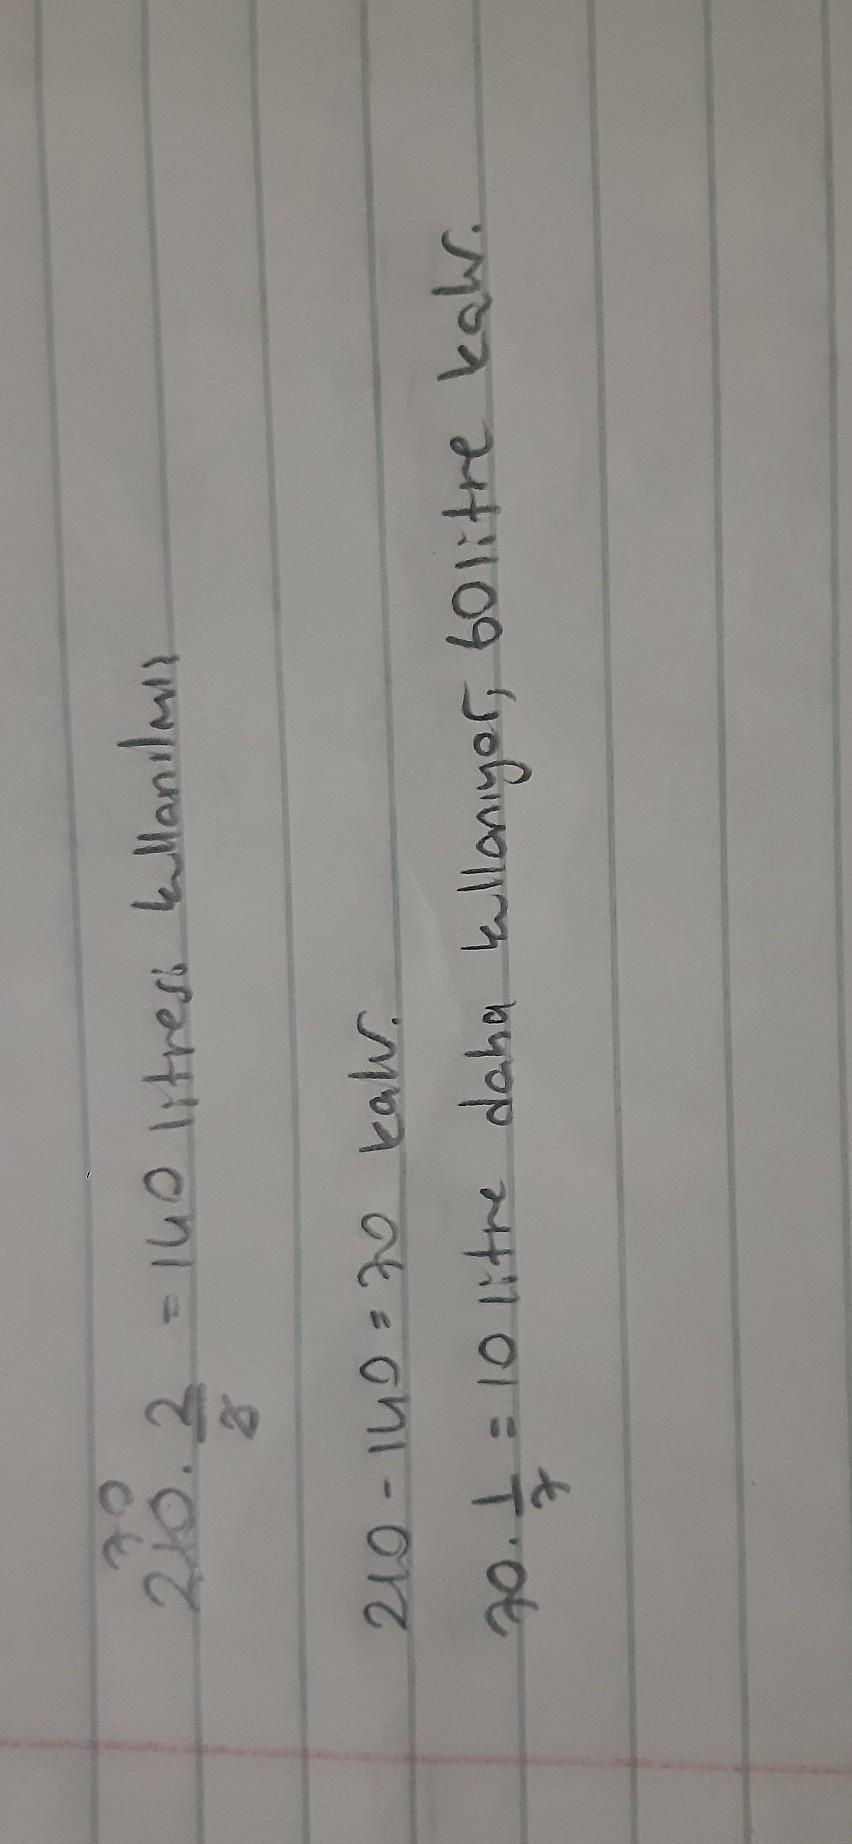 70
210 . 2/3 = 140 litresi kullanılmış
210 - 140 = 70 kalır.
70 . 1/7 = 10 litre daha kullanıyor, 60 litre kalır.